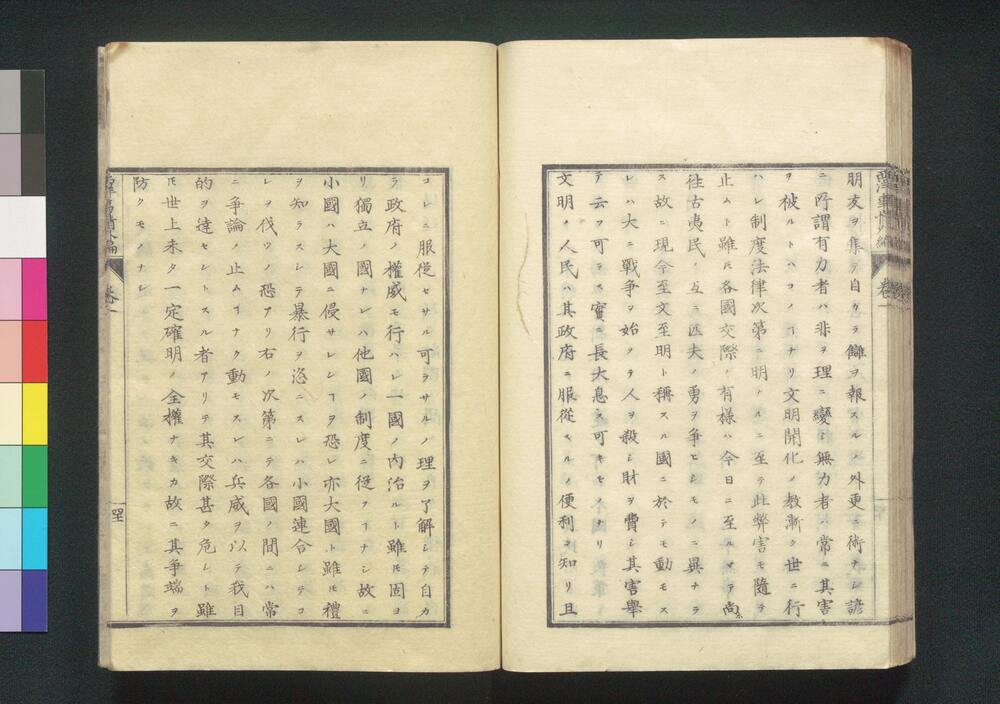 朋友ヲ集テ自カラ讎ヲ報スルノ外更ニ術ナシ諺
ニ所謂有力者ハ非ヲ理ニ變シ無力者ハ常ニ其害
ヲ被ルトハコノヿナリ文明開化ノ教漸ク世ニ行
ハレ制度法律次第ニ明ナルニ至テ此弊害モ隨テ
止ムト雖𪜈各國交際ノ有樣ハ今日ニ至ルマテ尚ホ
徃古夷民ノ互ニ匹夫ノ勇ヲ爭ヒシモノニ異ナラ
ス故ニ現今至文至明ト稱スル國ニ於テモ動モス
レハ大ニ戰爭ヲ始メタ人ヲ殺シ財ヲ費シ其害擧
テ云フ可ラス實ニ長大息ス可キモノナリ
文明ノ人民ハ其政府ニ服從スルノ便利ヲ知リ且
コレニ服從セサル可ラサルノ理ヲ了解シテ自カ
ラ政府ノ權威モ行ハレ一國ノ內治ルト雖𪜈固ヨ
リ獨立ノ國ナレハ他國ノ制度ニ從フヿナシ故ニ
小國ハ大國ニ侵サレンヿヲ恐レ亦大國ト雖𪜈禮
ヲ知ラスシテ暴行ヲ恣ニスレハ小國連合シテコ
レヲ伐ツノ恐アリ右ノ次第ニテ各國ノ間ニハ常
ニ爭論ノ止ムヿナク動モスレハ兵威ヲ以テ我目
的ヲ達セントスル者アリテ其交際甚タ危レト雖
𪜈世上未タ一定確明ノ全權ナキカ故ニ其爭端ヲ
防クモノナシ